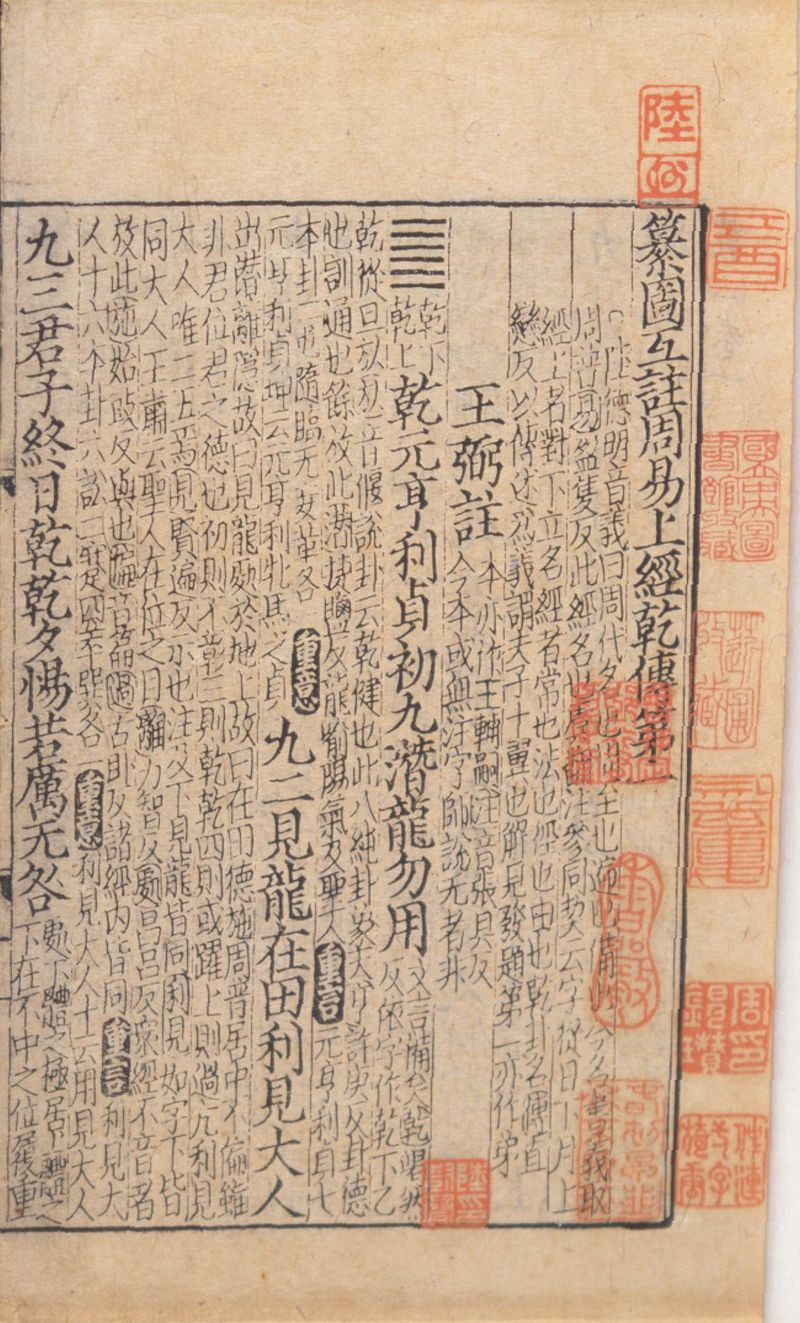 纂圖互註周易上經乾傳第一
○陸德明音義曰周代名也周至也遍也備也今名書義取
周普易盈隻反此經名也虞翻注參同契云字從日下月上
經上者對下立名經者常也法也經也由也乾卦名傳直
戀反以傳述爲義謂夫子十翼也解見發題第一亦作弟
王弼註 本亦作王輔嗣注音張具反
今本或無注字師說无者非
乾下
乾上
乾元亨利貞初九潛龍勿用 文言備矣乾竭然
反依字作乾下乙
乾從旦㫃㫃音偃說卦云乾健也此八純卦象天亨許庚反卦德
也訓通也餘放此潛捷鹽反龍喻陽氣及聖人 重言 元亨利貞七
本卦二也隨臨无妄革各 重意
元亨利貞坤云元亨利牝馬之貞
九二見龍在田利見大人
出潛離隱故曰見龍處於地上故曰在田德施周普居中不偏雖
非君位君之德也初則不彰三則乾乾四則或躍上則過亢利見
大人唯二五焉見賢遍反示也注及下見龍皆同利見如字下皆
同大人王肅云聖人在位之目離力智反處昌呂反衆經不音者
放此施始豉反與也偏音篇過古臥反諸經內皆同 重言 利見大
人十六本卦六訟二蹇四萃巽各一 重意 利見大人十云用見大人
九三君子終日乾乾夕惕若厲无咎 處下體之極居上體之
下在不中之位履重